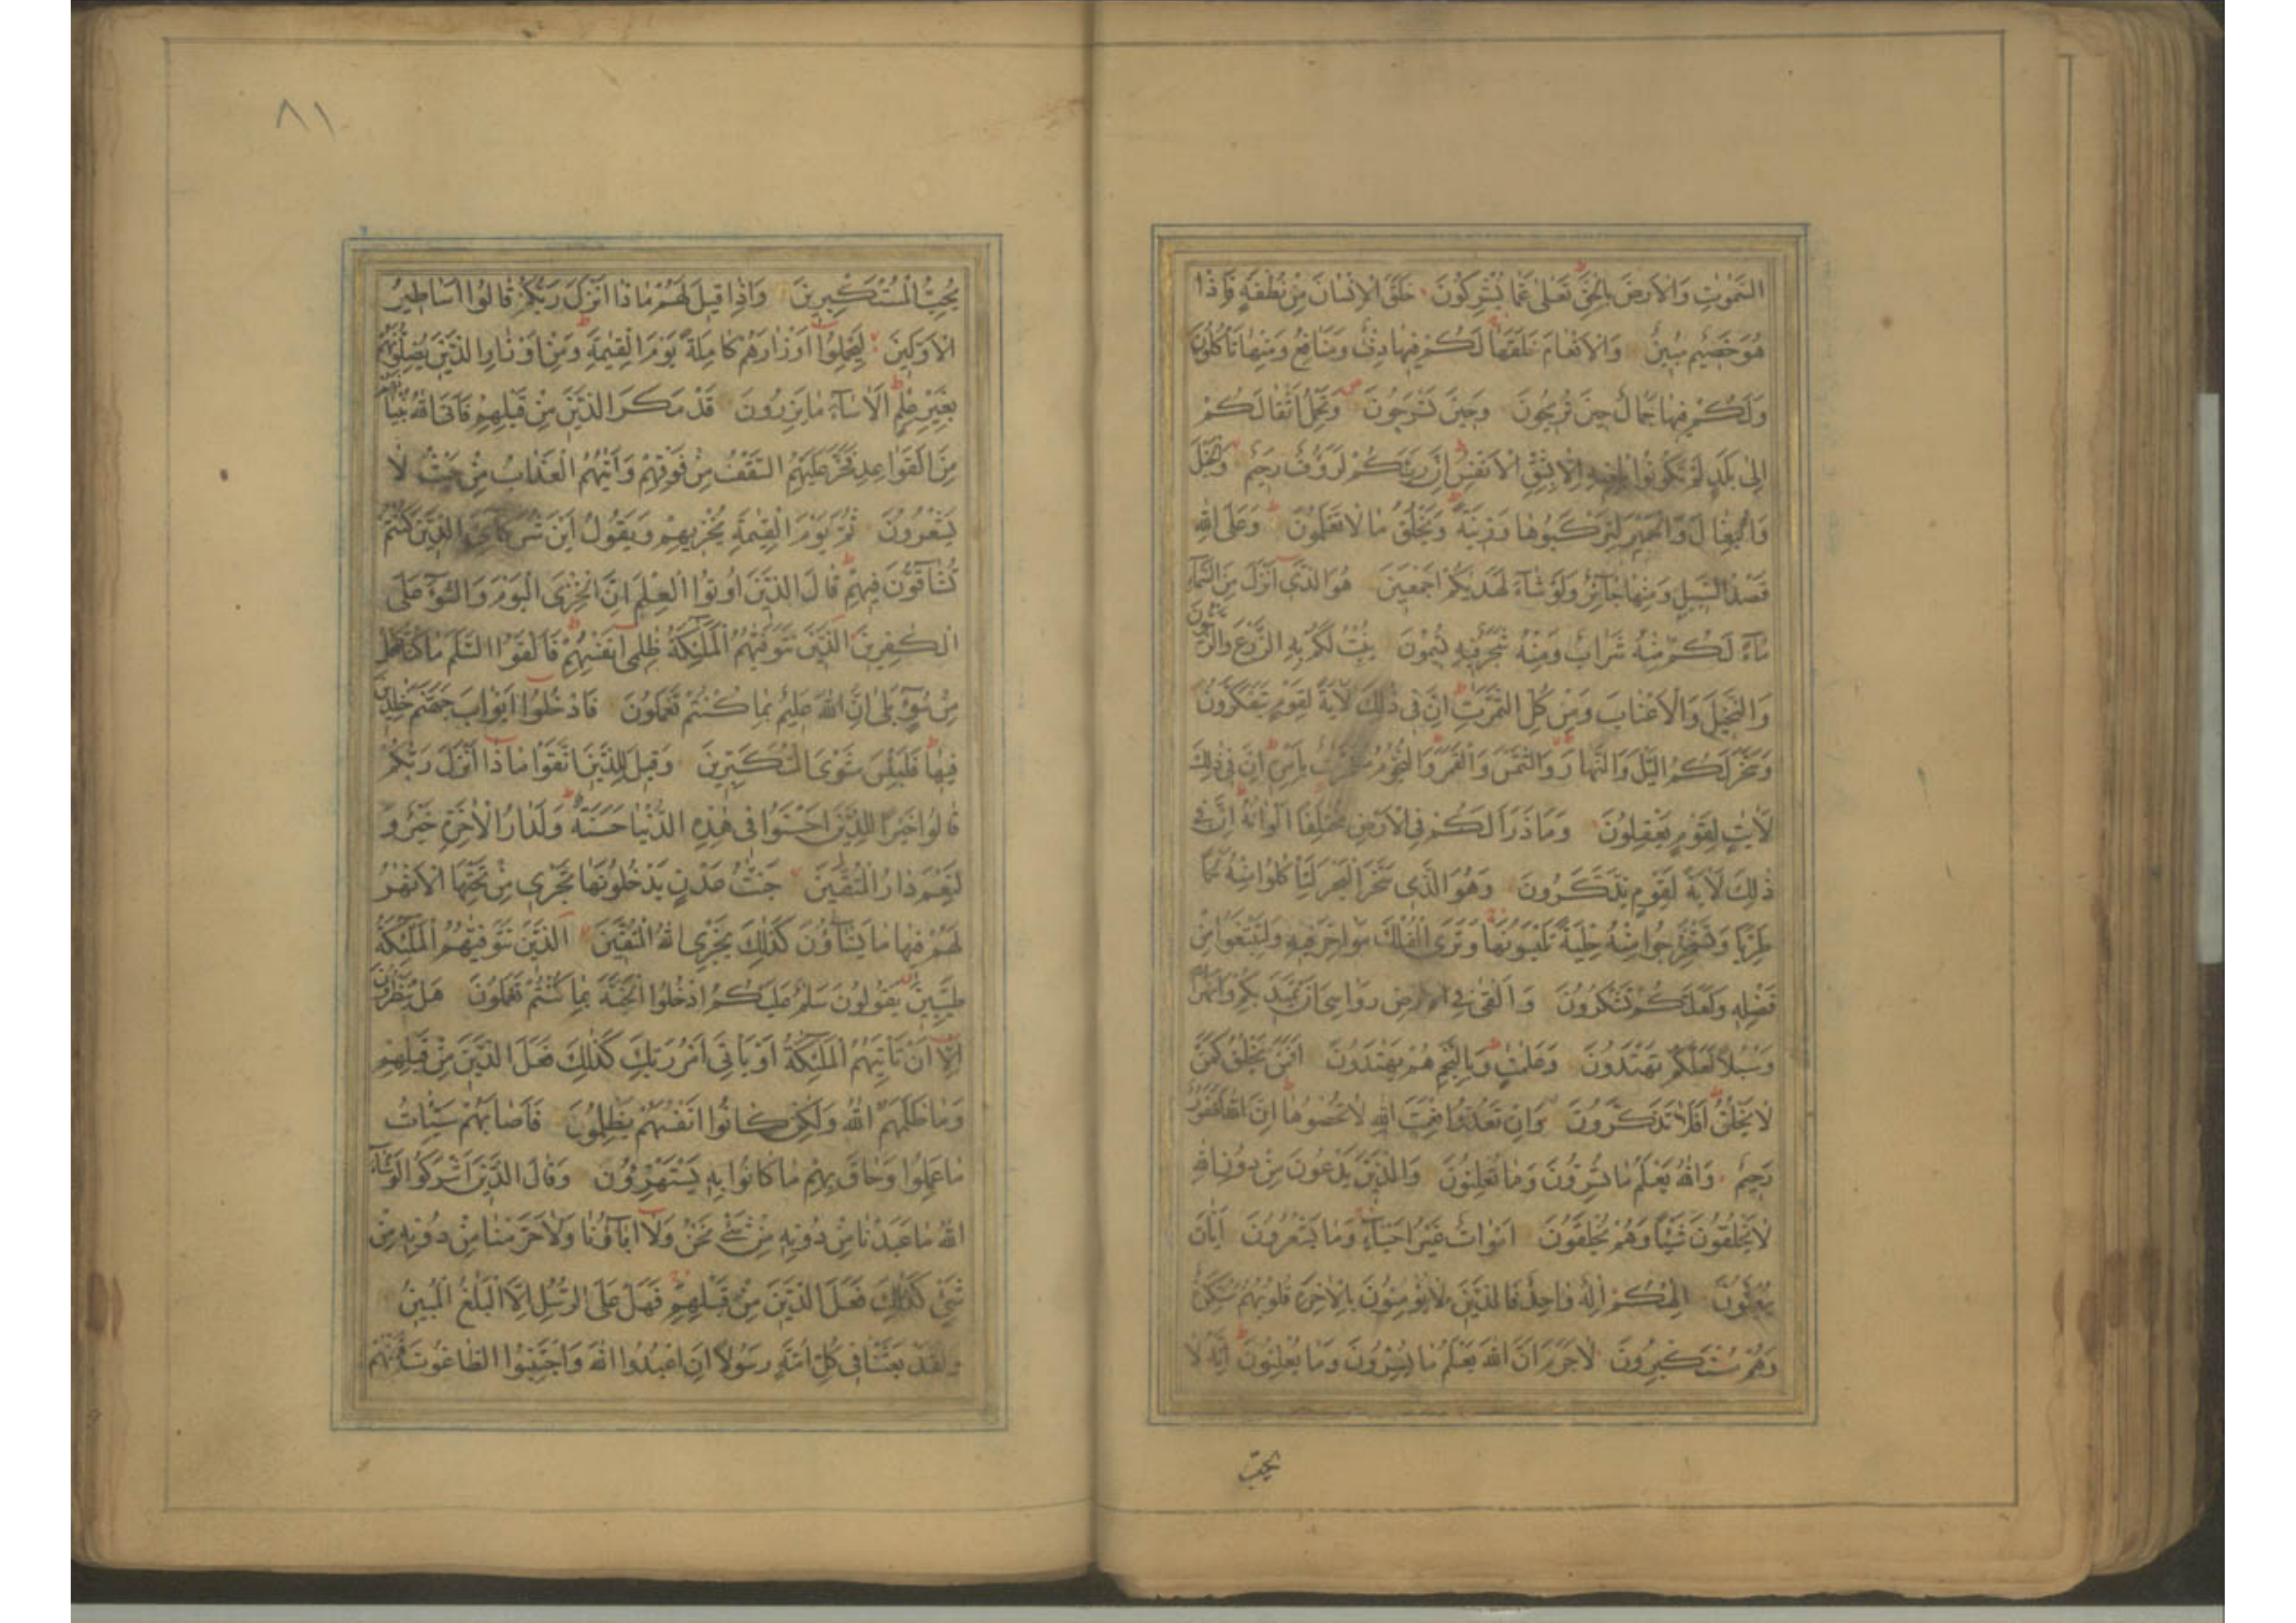 السَّمٰوٰتِ وَالْاَرْضَ بِالْحَقِّ تَعٰلٰى عَمَّا يُشْرِكُونَ خَلَقَ الْاِنْسَانَ مِنْ نُطْفَةٍ فَاِذَا
هُوَ خَصِيمٌ مُبِينٌ وَالْاَنْعَامَ خَلَقَهَا لَكُمْ فِيهَا دِفْءٌ وَمَنَافِعُ وَمِنْهَا تَأْكُلُونَ
وَلَكُمْ فِيهَا جَمَالٌ حِينَ تُرِيحُونَ وَحِينَ تَسْرَحُونَ وَتَحْمِلُ اَثْقَالَكُمْ
اِلٰى بَلَدٍ لَمْ تَكُونُوا بَالِغِيهِ اِلَّا بِشِقِّ الْاَنْفُسِ اِنَّ رَبَّكُمْ لَرَؤُفٌ رَحِيمٌ وَالْخَيْلَ
وَالْبِغَالَ وَالْحَمِيرَ لِتَرْكَبُوهَا وَزِينَةً وَيَخْلُقُ مَا لَا تَعْلَمُونَ وَعَلَى اللهِ
قَصْدُ السَّبِيلِ وَمِنْهَا جَآئِرٌ وَلَوْ شَآءَ لَهَدٰيكُمْ اَجْمَعِينَ هُوَ الَّذِي اَنْزَلَ مِنَ السَّمَآءِ
مَآءً لَكُمْ مِنْهُ شَرَابٌ وَمِنْهُ شَجَرٌ فِيهِ تُسِيمُونَ يُنْبِتُ لَكُمْ بِهِ الزَّرْعَ وَالزَّيْتُونَ
وَالنَّخِيلَ وَالْاَعْنَابَ وَمِنْ كُلِّ الثَّمَرٰتِ اِنَّ فِي ذٰلِكَ لَاٰيَةً لِقَوْمٍ يَتَفَكَّرُونَ
وَسَخَّرَ لَكُمُ الَّيْلَ وَالنَّهَارَ وَالشَّمْسَ وَالْقَمَرَ وَالنُّجُومُ مُسَخَّرٰتٌ بِاَمْرِهِ اِنَّ فِي ذٰلِكَ
لَاٰيٰتٍ لِقَوْمٍ يَعْقِلُونَ وَمَا ذَرَاَ لَكُمْ فِي الْاَرْضِ مُخْتَلِفًا اَلْوَانُهُ اِنَّ فِي
ذٰلِكَ لَاٰيَةً لِقَوْمٍ يَذَّكَّرُونَ وَهُوَ الَّذِي سَخَّرَ الْبَحْرَ لِتَأْكُلُوا مِنْهُ لَحْمًا
طَرِيًّا وَتَسْتَخْرِجُوا مِنْهُ حِلْيَةً تَلْبَسُونَهَا وَتَرَى الْفُلْكَ مَوَاخِرَ فِيهِ وَلِتَبْتَغُوا مِنْ
فَضْلِهِ وَلَعَلَّكُمْ تَشْكُرُونَ وَاَلْقٰى فِي الْاَرْضِ رَوَاسِيَ اَنْ تَمِيدَ بِكُمْ وَاَنْهَارًا
وَسُبُلًا لَعَلَّكُمْ تَهْتَدُونَ وَعَلٰمٰتٍ وَبِالنَّجْمِ هُمْ يَهْتَدُونَ اَفَمَنْ يَخْلُقُ كَمَنْ
لَا يَخْلُقُ اَفَلَا تَذَكَّرُونَ وَاِنْ تَعُدُّوا نِعْمَتَ اللهِ لَا تُحْصُوهَا اِنَّ اللهَ لَغَفُورٌ
رَحِيمٌ وَاللهُ يَعْلَمُ مَا تُسِرُّونَ وَمَا تُعْلِنُونَ وَالَّذِينَ يَدْعُونَ مِنْ دُونِ اللهِ
لَا يَخْلُقُونَ شَيْئًا وَهُمْ يُخْلَقُونَ اَمْوَاتٌ غَيْرُ اَحْيَآءٍ وَمَا يَشْعُرُونَ اَيَّانَ
يُبْعَثُونَ اِلٰهُكُمْ اِلٰهٌ وَاحِدٌ فَالَّذِينَ لَا يُؤْمِنُونَ بِالْاٰخِرَةِ قُلُوبُهُمْ مُنْكِرَةٌ
وَهُمْ مُسْتَكْبِرُونَ لَا جَرَمَ اَنَّ اللهَ يَعْلَمُ مَا يُسِرُّونَ وَمَا يُعْلِنُونَ اِنَّهُ لَا
يُحِبُّ
٨١
يُحِبُّ الْمُسْتَكْبِرِينَ وَاِذَا قِيلَ لَهُمْ مَاذَا اَنْزَلَ رَبُّكُمْ قَالُوا اَسَاطِيرُ
الْاَوَّلِينَ لِيَحْمِلُوا اَوْزَارَهُمْ كَامِلَةً يَوْمَ الْقِيٰمَةِ وَمِنْ اَوْزَارِ الَّذِينَ يُضِلُّونَهُمْ
بِغَيْرِ عِلْمٍ اَلَا سَآءَ مَا يَزِرُونَ قَدْ مَكَرَ الَّذِينَ مِنْ قَبْلِهِمْ فَاَتَى اللهُ بُنْيَانَهُمْ
مِنَ الْقَوَاعِدِ فَخَرَّ عَلَيْهِمُ السَّقْفُ مِنْ فَوْقِهِمْ وَاَتٰيهُمُ الْعَذَابُ مِنْ حَيْثُ لَا
يَشْعُرُونَ ثُمَّ يَوْمَ الْقِيٰمَةِ يُخْزِيهِمْ وَيَقُولُ اَيْنَ شُرَكَآئِيَ الَّذِينَ كُنْتُمْ
تُشَآقُّونَ فِيهِمْ قَالَ الَّذِينَ اُوتُوا الْعِلْمَ اِنَّ الْخِزْيَ الْيَوْمَ وَالسُّوٓءَ عَلَى
الْكٰفِرِينَ الَّذِينَ تَتَوَفّٰيهُمُ الْمَلٰٓئِكَةُ ظٰلِمِي اَنْفُسِهِمْ فَاَلْقَوُا السَّلَمَ مَا كُنَّا نَعْمَلُ
مِنْ سُوٓءٍ بَلٰى اِنَّ اللهَ عَلِيمٌ بِمَا كُنْتُمْ تَعْمَلُونَ فَادْخُلُوا اَبْوَابَ جَهَنَّمَ خٰلِدِينَ
فِيهَا فَلَبِئْسَ مَثْوَى الْمُتَكَبِّرِينَ وَقِيلَ لِلَّذِينَ اتَّقَوْا مَاذَا اَنْزَلَ رَبُّكُمْ
قَالُوا خَيْرًا لِلَّذِينَ اَحْسَنُوا فِي هٰذِهِ الدُّنْيَا حَسَنَةٌ وَلَدَارُ الْاٰخِرَةِ خَيْرٌ وَ
لَنِعْمَ دَارُ الْمُتَّقِينَ جَنّٰتُ عَدْنٍ يَدْخُلُونَهَا تَجْرِي مِنْ تَحْتِهَا الْاَنْهٰرُ
لَهُمْ فِيهَا مَا يَشَآؤُنَ كَذٰلِكَ يَجْزِي اللهُ الْمُتَّقِينَ الَّذِينَ تَتَوَفّٰيهُمُ الْمَلٰٓئِكَةُ
طَيِّبِينَ يَقُولُونَ سَلٰمٌ عَلَيْكُمُ ادْخُلُوا الْجَنَّةَ بِمَا كُنْتُمْ تَعْمَلُونَ هَلْ يَنْظُرُونَ
اِلَّا اَنْ تَأْتِيَهُمُ الْمَلٰٓئِكَةُ اَوْ يَأْتِيَ اَمْرُ رَبِّكَ كَذٰلِكَ فَعَلَ الَّذِينَ مِنْ قَبْلِهِمْ
وَمَا ظَلَمَهُمُ اللهُ وَلٰكِنْ كَانُوا اَنْفُسَهُمْ يَظْلِمُونَ فَاَصَابَهُمْ سَيِّئَاتُ
مَا عَمِلُوا وَحَاقَ بِهِمْ مَا كَانُوا بِهِ يَسْتَهْزِؤُونَ وَقَالَ الَّذِينَ اَشْرَكُوا لَوْ شَآءَ
اللهُ مَا عَبَدْنَا مِنْ دُونِهِ مِنْ شَيْءٍ نَحْنُ وَلَا اٰبَآؤُنَا وَلَا حَرَّمْنَا مِنْ دُونِهِ مِنْ
شَيْءٍ كَذٰلِكَ فَعَلَ الَّذِينَ مِنْ قَبْلِهِمْ فَهَلْ عَلَى الرُّسُلِ اِلَّا الْبَلٰغُ الْمُبِينُ
وَلَقَدْ بَعَثْنَا فِي كُلِّ اُمَّةٍ رَسُولًا اَنِ اعْبُدُوا اللهَ وَاجْتَنِبُوا الطَّاغُوتَ فَمِنْهُمْ